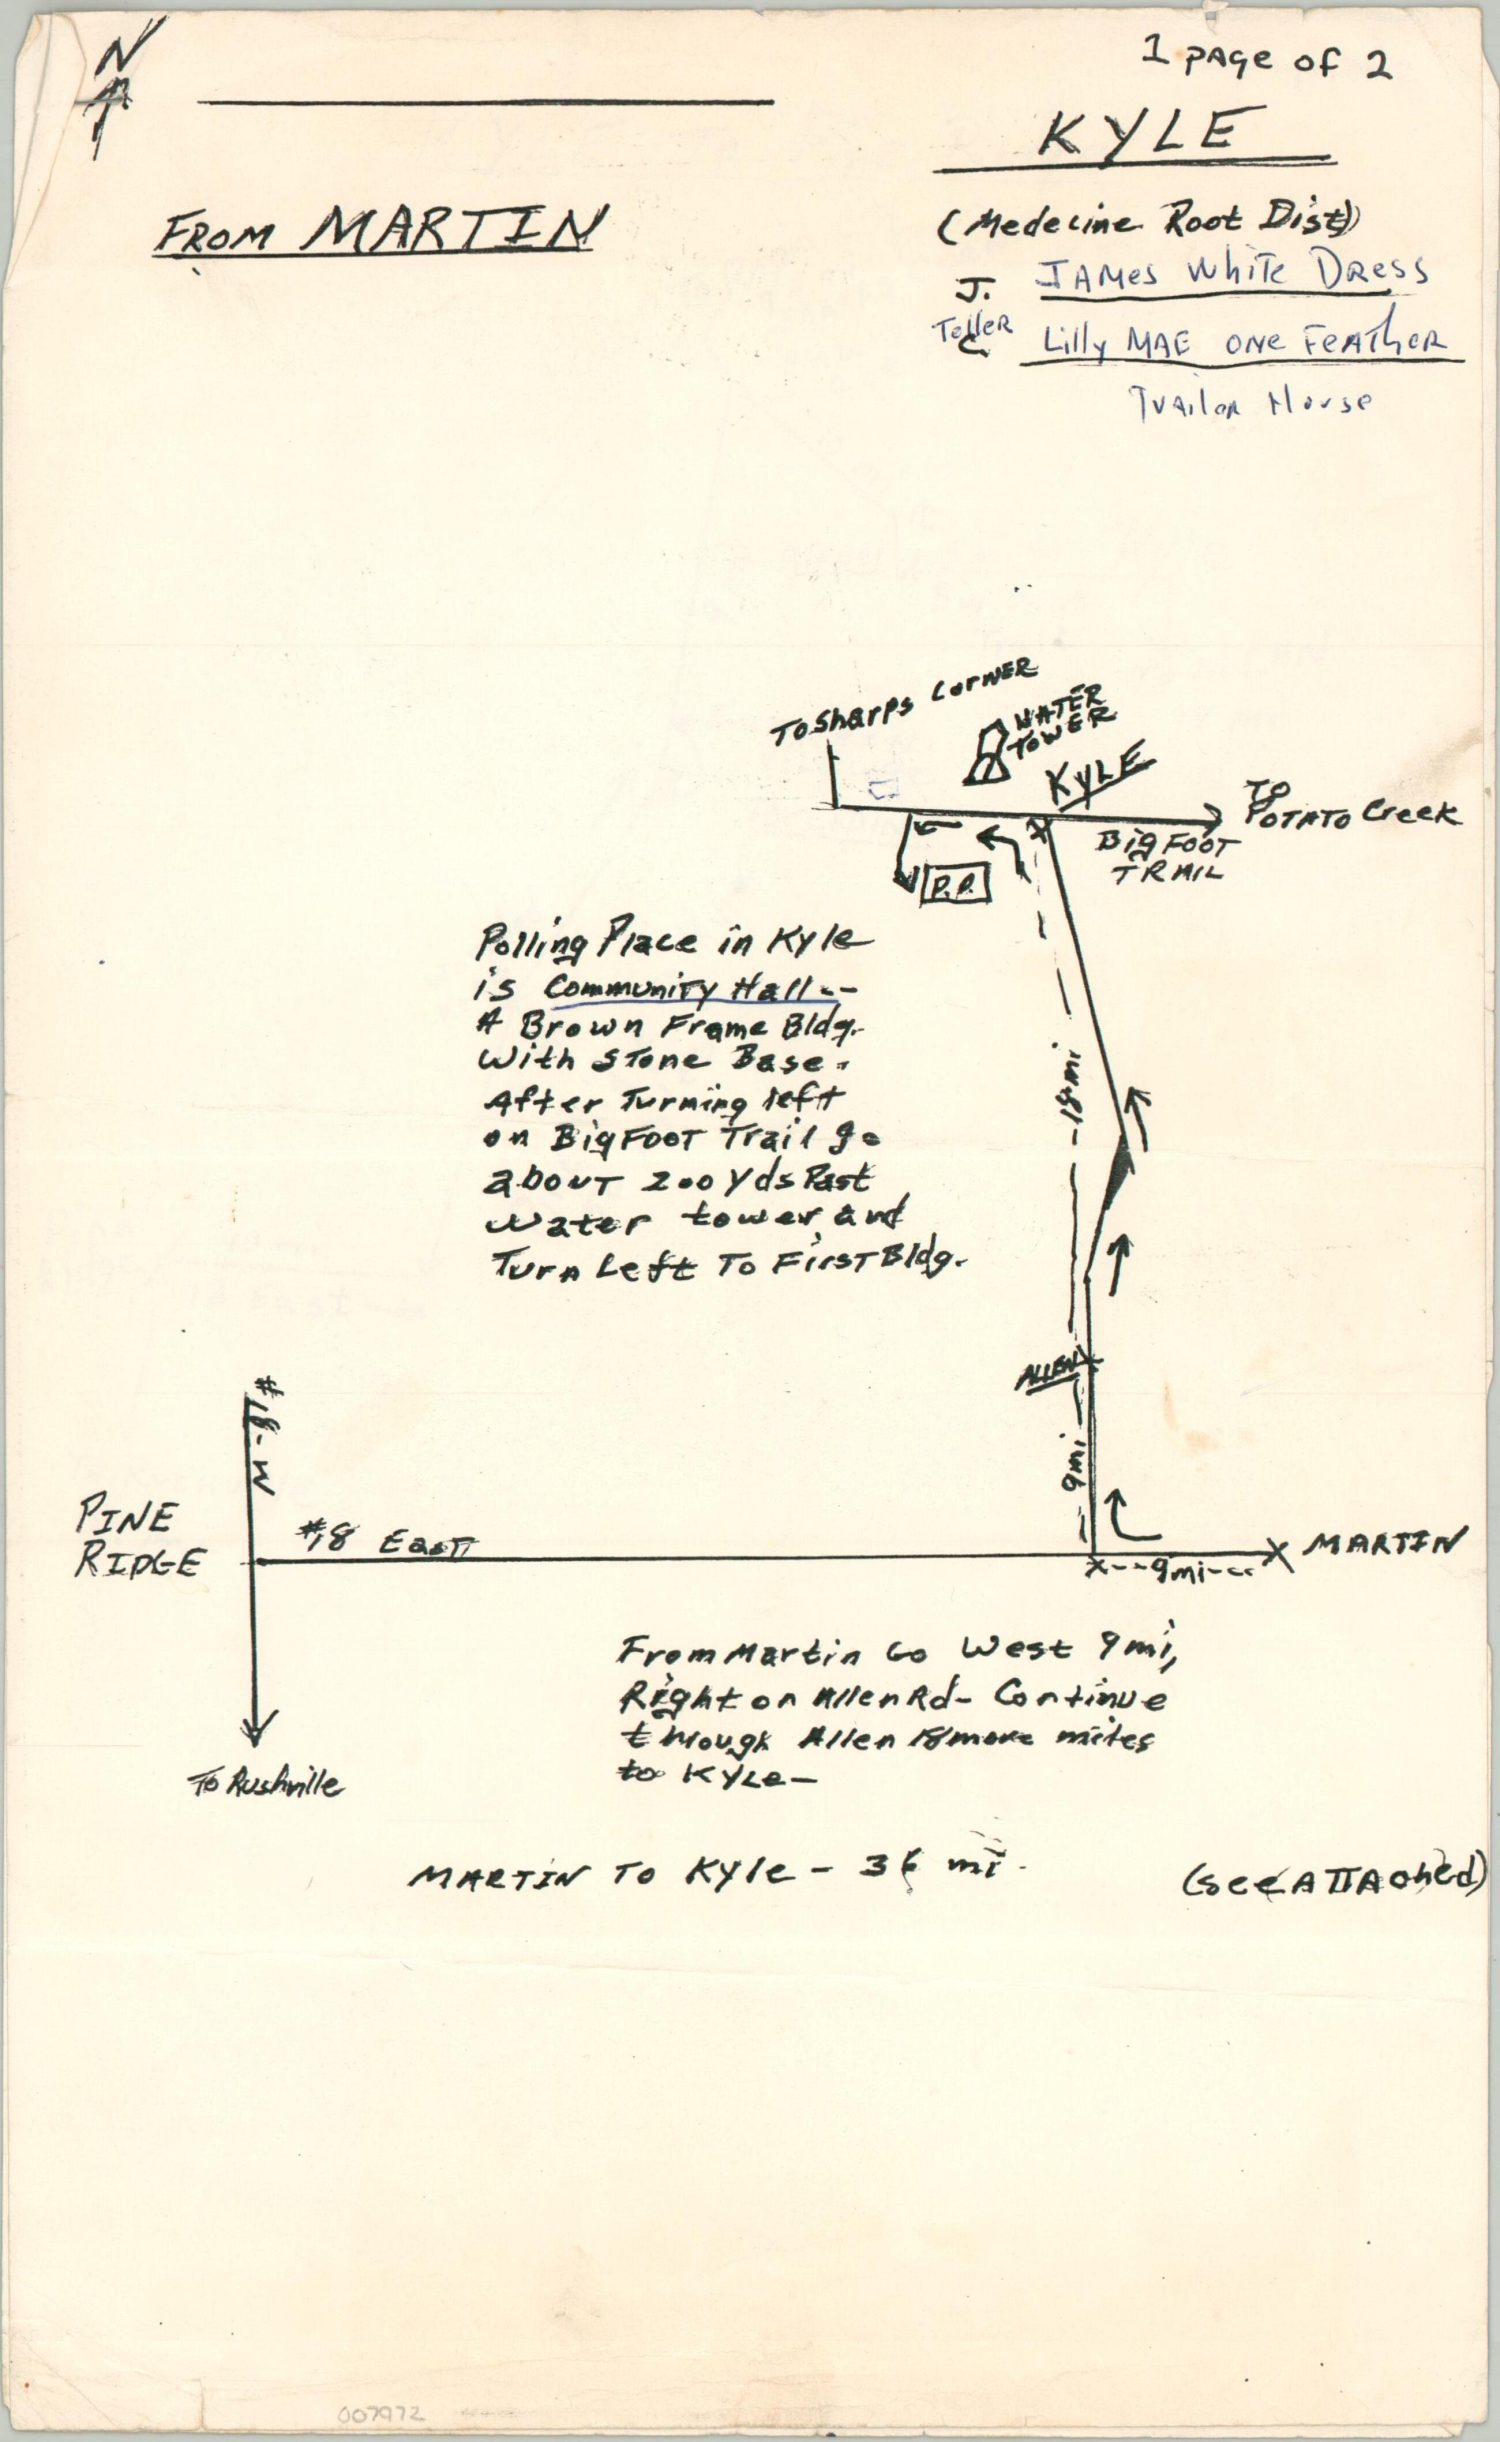 N
1 page of 2
KYLE
(Medecine Root Dist)
FROM MARTIN
J. JAMes White Dress
Teller
C. Lilly MAE ONe FeATher
Trailer House
To Sharps Corner
WATER
TOWER
KYLE
TO
POTATO Creek
BigFOOT
TRAIL
P.P.
Polling Place in Kyle
is Community Hall--
A Brown Frame Bldg.
With Stone Base.
After Turning left
on BigFOOT Trail go
about 200 Yds Past
Water tower and
Turn Left To First Bldg.
18mi
ALLEN
9mi
#18-N
PINE
RIDGE
#18 East
MARTIN
9mi
From Martin Go West 9 mi,
Right on Allen Rd- Continue
through Allen 18 more miles
to Kyle-
To Rushville
MARTIN TO Kyle - 36 mi.
(see ATTAched)
007972